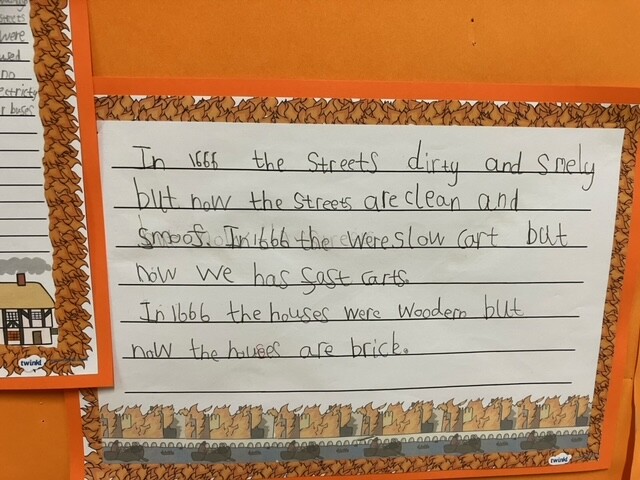 streets
were
used
no
ectricty
r buses
twinkl
In 1666 the streets dirty and smely
but now the streets are clean and
smoof. In 1666 the were slow cart but
now we has fast carts.
In 1666 the houses were woodern but
now the houses are brick.
twinkl